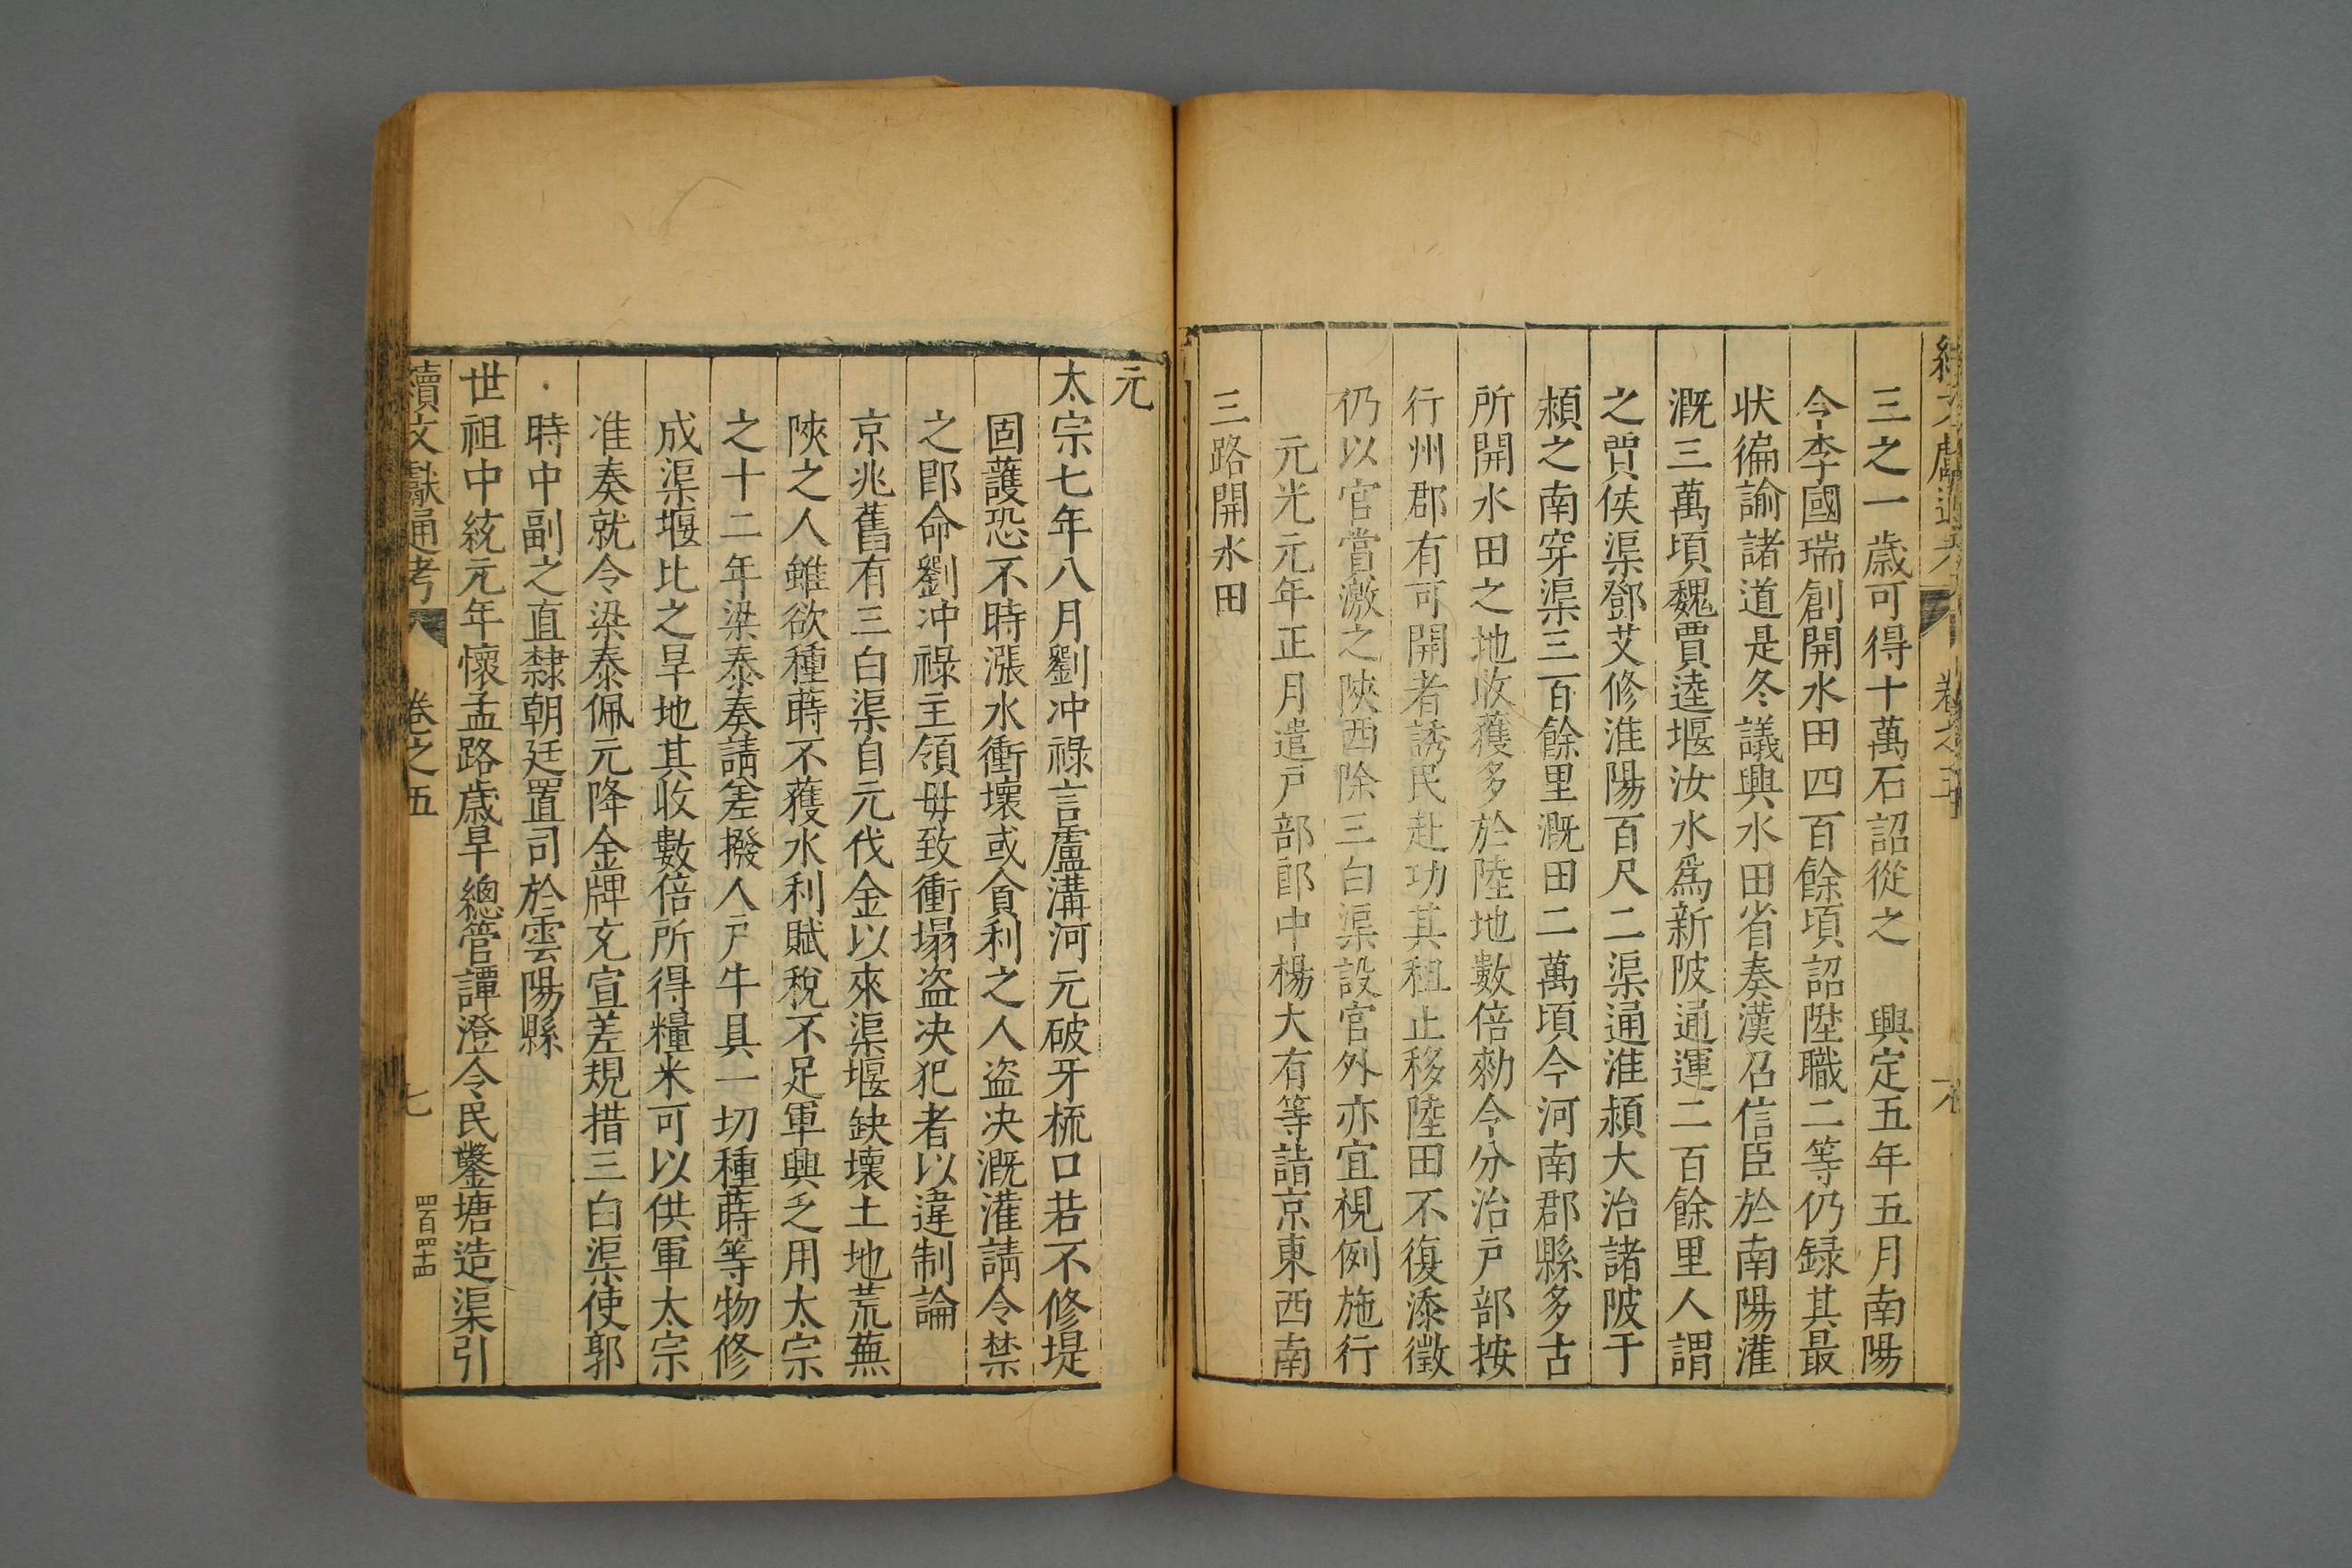 三之一歲可得十萬石詔從之　興定五年五月南陽
令李國瑞創開水田四百餘頃詔陞職二等仍録其最
狀徧諭諸道是冬議興水田省奏漢召信臣於南陽灌
溉三萬頃魏賈逵堰汝水爲新陂通運二百餘里人謂
之賈侯渠鄧艾修淮陽百尺二渠通淮潁大治諸陂于
潁之南穿渠三百餘里溉田二萬頃今河南郡縣多古
所開水田之地收穫多於陸地數倍勑令分治戸部按
行州郡有可開者誘民赴功其租止移陸田不復添徵
仍以官賞激之陝西除三白渠設官外亦宜視例施行
元光元年正月遣戸部郎中楊大有等詣京東西南
三路開水田
元
太宗七年八月劉冲祿言盧溝河元破牙梳口若不修堤
固護恐不時漲水衝壞或貪利之人盗决溉灌請令禁
之即命劉冲祿主領毋致衝塌盗决犯者以違制論
京兆舊有三白渠自元伐金以來渠堰缺壞土地荒蕪
陝之人雖欲種蒔不獲水利賦稅不足軍興乏用太宗
之十二年梁泰奏請差撥人戸牛具一切種蒔等物修
成渠堰比之旱地其收數倍所得糧米可以供軍太宗
准奏就令梁泰佩元降金牌充宣差規措三白渠使郭
時中副之直隸朝廷置司於雲陽縣
世祖中統元年懷孟路歲旱總管譚澄令民鑿塘造渠引
續文獻通考　卷之五　七　四百四十四